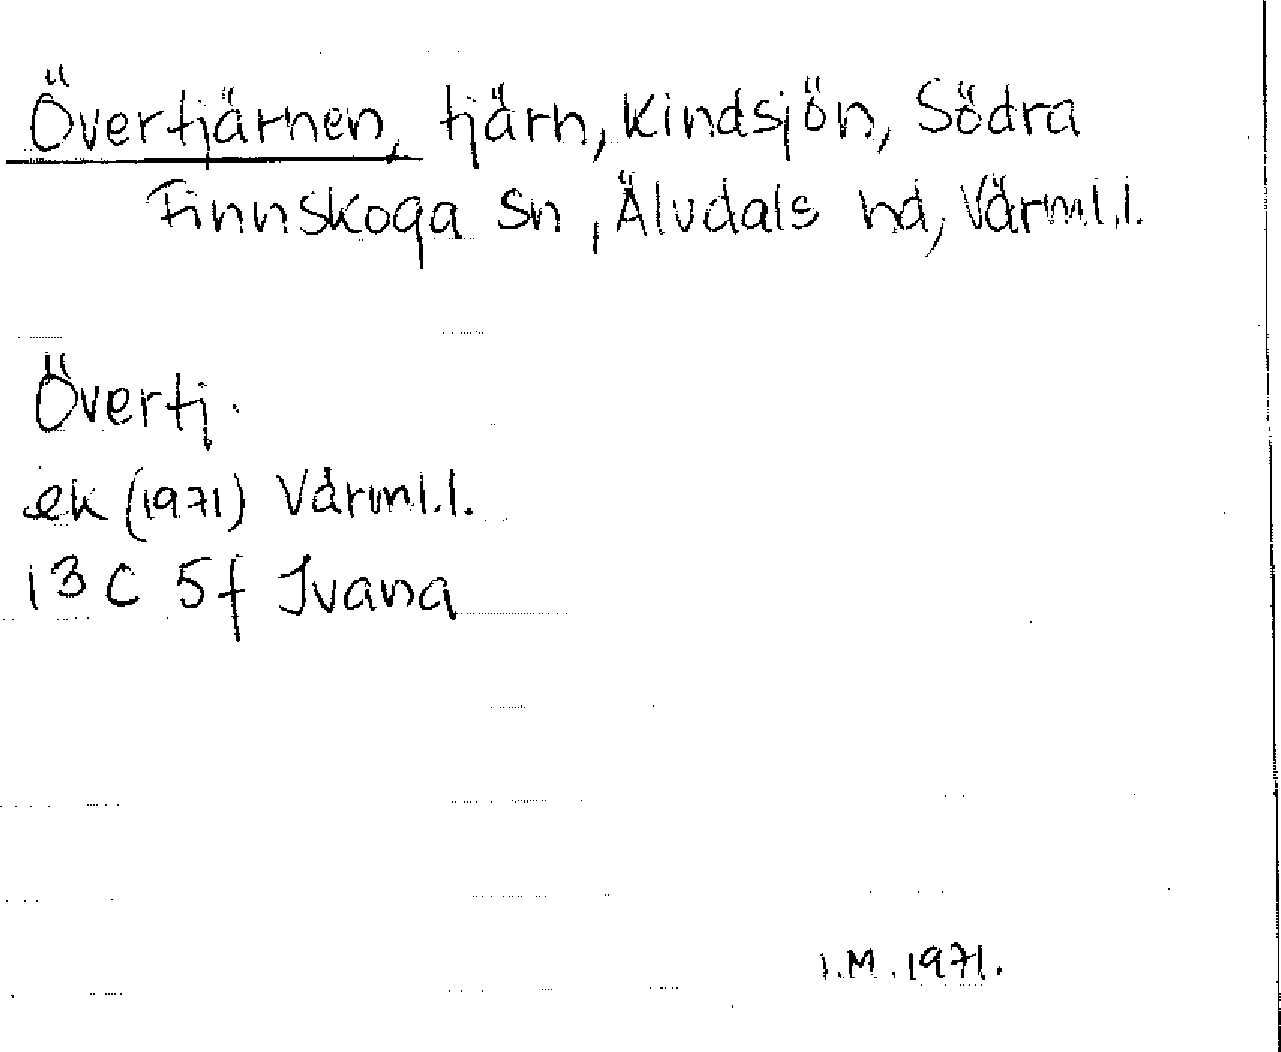 Övertjärnen, tjärn, Kindsjön, Södra
Finnskoga sn, Älvdals hd, Värml.l.
Övertj.
ek (1971) Värml.l.
13 C 5f Ivana
I.M. 1971.